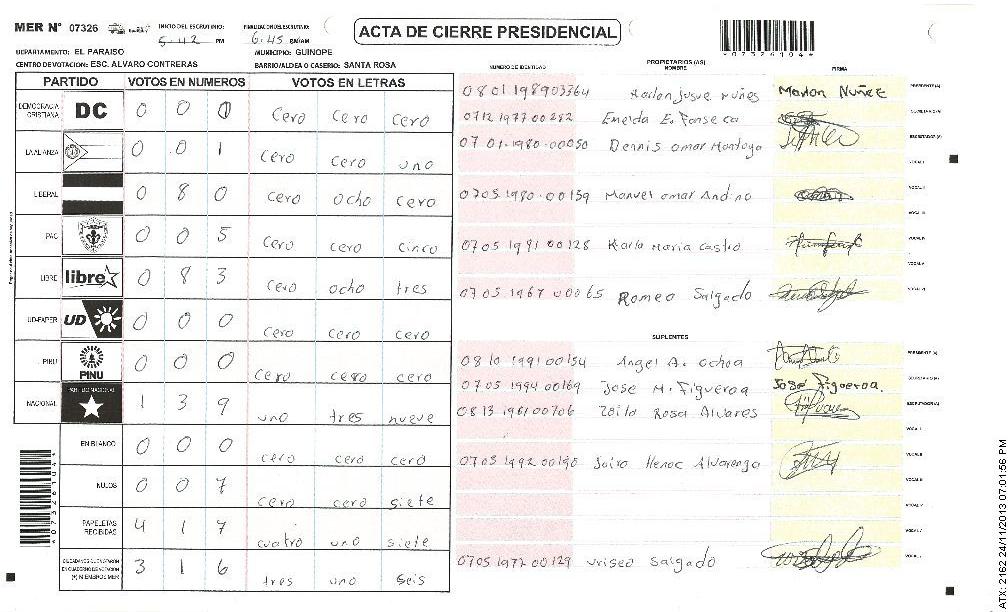 MER Nº 07326 INICIO DEL ESCRUTINIO: 5:42 PM FINALIZACION ESCRUTINIO: 6:45 ACTA DE CIERRE PRESIDENCIAL
DEPARTAMENTO: EL PARAISO MUNICIPIO: GUINOPE
CENTRO DE VOTACION: ESC. ALVARO CONTRERAS BARRIO/ALDEA O CASERIO: SANTA ROSA
*07326104*
PARTIDO VOTOS EN NUMEROS VOTOS EN LETRAS
DEMOCRACIA CRISTIANA DC 0 0 0 Cero Cero Cero
LA ALIANZA 0 0 1 Cero Cero uno
LIBERAL 0 8 0 Cero ocho Cero
PAC 0 0 5 Cero cero cinco
LIBRE libre 0 8 3 Cero ocho tres
UD-FAPER UD 0 0 0 Cero Cero Cero
PINU PINU 0 0 0 Cero cero cero
NACIONAL PARTIDO NACIONAL 1 3 9 uno tres nueve
EN BLANCO 0 0 0 cero cero cero
NULOS 0 0 7 cero cero siete
PAPELETAS RECIBIDAS 4 1 7 cuatro uno siete
CIUDADANOS QUE VOTARON EN CUADERNO DE VOTACION (+) MIEMBROS MER 3 1 6 tres uno seis
NUMERO DE IDENTIDAD PROPIETARIOS (AS) NOMBRE FIRMA
0801198903364 Marlon Nuñez PRESIDENTE (A)
0712 1977 00282 Eneida E. Fonseca SECRETARIO (A)
07 01-1980-00050 Dennis omar Montoya ESCRUTADOR (A)
VOCAL I
0705 1980-00159 Manuel omar Andino VOCAL II
VOCAL III
0705 1991 00128 Karla Maria Castro VOCAL IV
VOCAL V
0705 1967 00065 Romeo Salgado VOCAL VI
SUPLENTES
0810 1991 00154 Angel A. Ochoa PRESIDENTE (A)
0705 1994 00169 Jose M. Figueroa Jose Figueroa. SECRETARIO (A)
0813 1961 00706 Rosa Alvares ESCRUTADOR (A)
VOCAL I
0703 1992 00190 Jairo Henoc Alvarenga VOCAL II
VOCAL III
VOCAL IV
VOCAL V
0705 1972 00129 Salgado
ATX: 2162 24/11/2013 07:01:56 PM
*07326104*